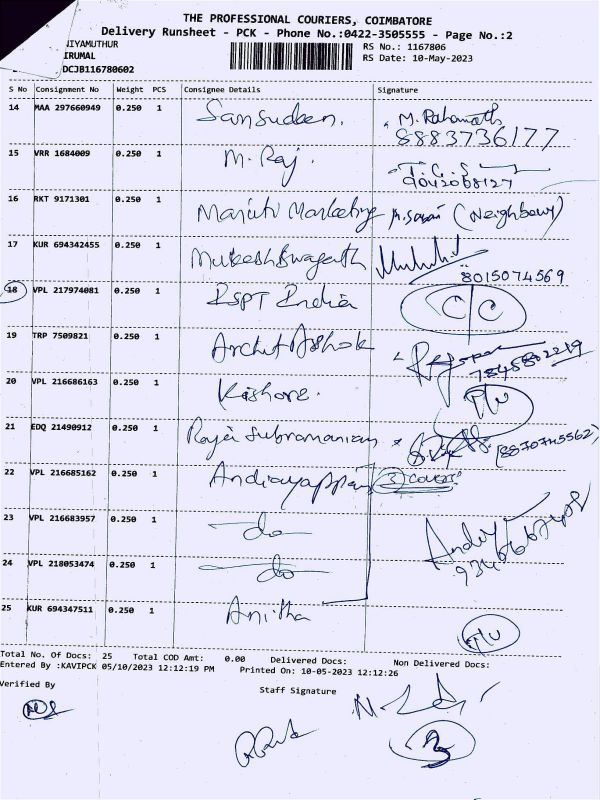 THE PROFESSIONAL COURIERS, COIMBATORE
Delivery Runsheet - PCK - Phone No.:0422-3505555 - Page No.:2
NIYAMUTHUR
RS No.: 1167806
IRUMAL
RS Date: 10-May-2023
DCJB116780602
S No Consignment No Weight PCS Consignee Details Signature
14 MAA 297660949 0.250 1 Sansudeen. M. Rahamath
8883736177
15 VRR 1684009 0.250 1 M. Raj.
9042068127
16 RKT 9171301 0.250 1 Maruti Marketing (Neighbour)
17 KUR 694342455 0.250 1 Mukesh Bwagath
8015074569
18 VPL 217974081 0.250 1 RSPT India C/C
19 TRP 7509821 0.250 1 Archit Ashok
7845802219
20 VPL 216686163 0.250 1 Kishore.
21 EDQ 21490912 0.250 1 Rajei Subramaniam (8870745562)
22 VPL 216685162 0.250 1 Andiayappan 3 covers
23 VPL 216683957 0.250 1 do
24 VPL 218053474 0.250 1 do
25 KUR 694347511 0.250 1 Anitha
Total No. Of Docs: 25 Total COD Amt: 0.00 Delivered Docs: Non Delivered Docs:
Entered By :KAVIPCK 05/10/2023 12:12:19 PM Printed On: 10-05-2023 12:12:26
Verified By Staff Signature